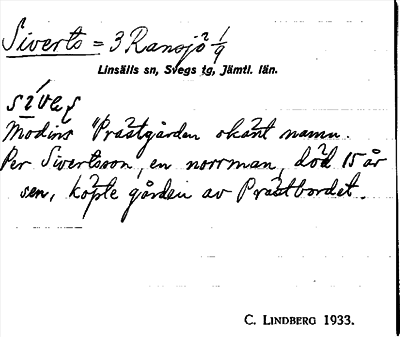 Siverts = 3 Ransjö 2/9
Linsälls sn, Svegs tg, Jämtl. län.
síveṣ
Modins "Prästgården okänt namn.
Per Sivertsson, en norrman, död 15 år
sen, köpte gården av Prästbordet.
C. LINDBERG 1933.